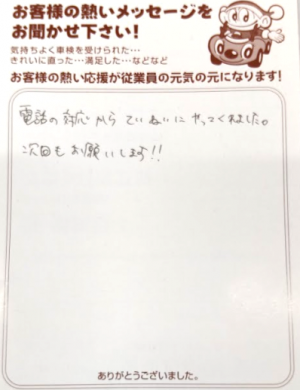 お客様の熱いメッセージを
お聞かせ下さい!
気持ちよく車検を受けられた…
きれいに直った…満足した…などなど
お客様の熱い応援が従業員の元気の元になります!
電話の対応からていねいにやってくれました。
次回もお願いします!!
ありがとうございました。